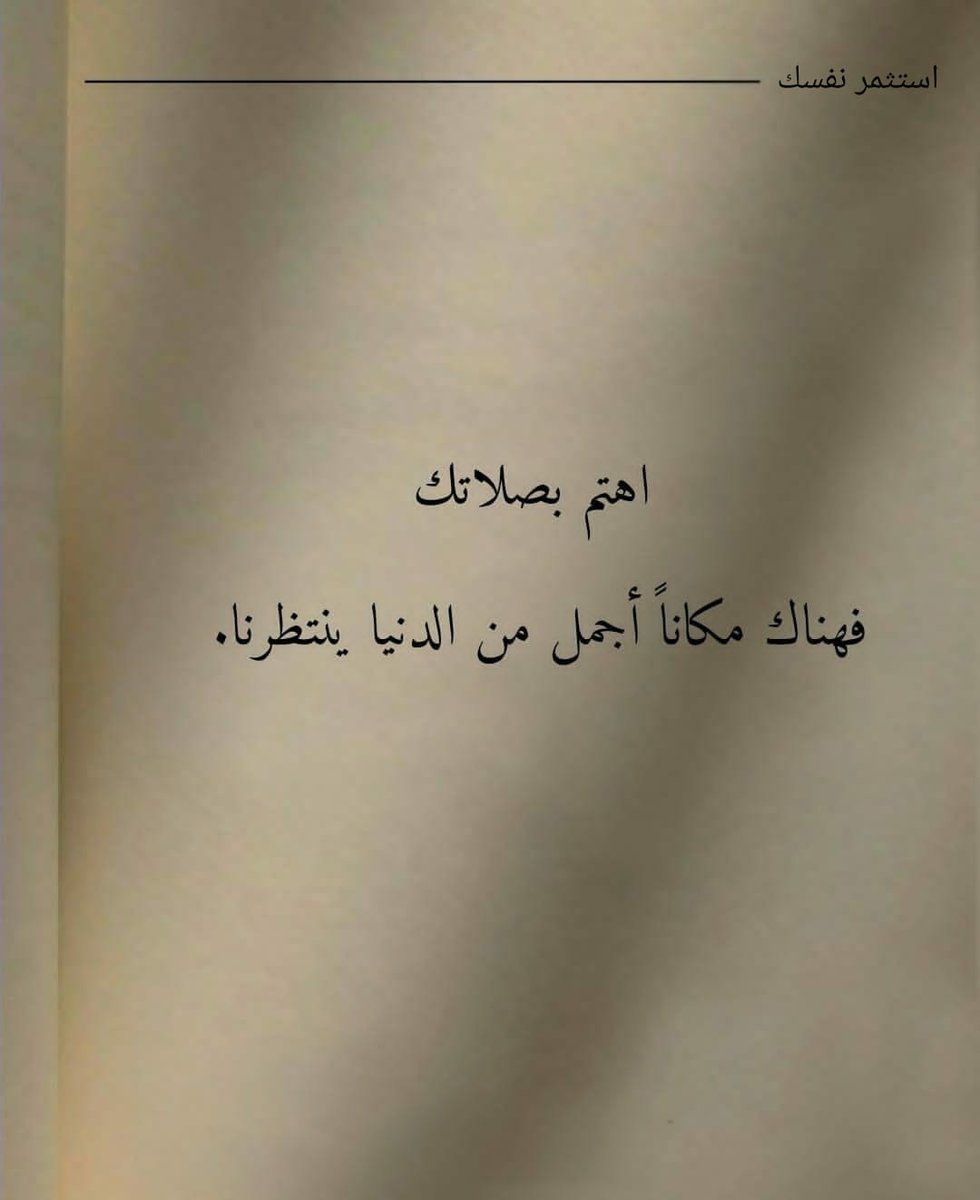 استثمر نفسك
اهتم بصلاتك
فهناك مكاناً أجمل من الدنيا ينتظرنا.